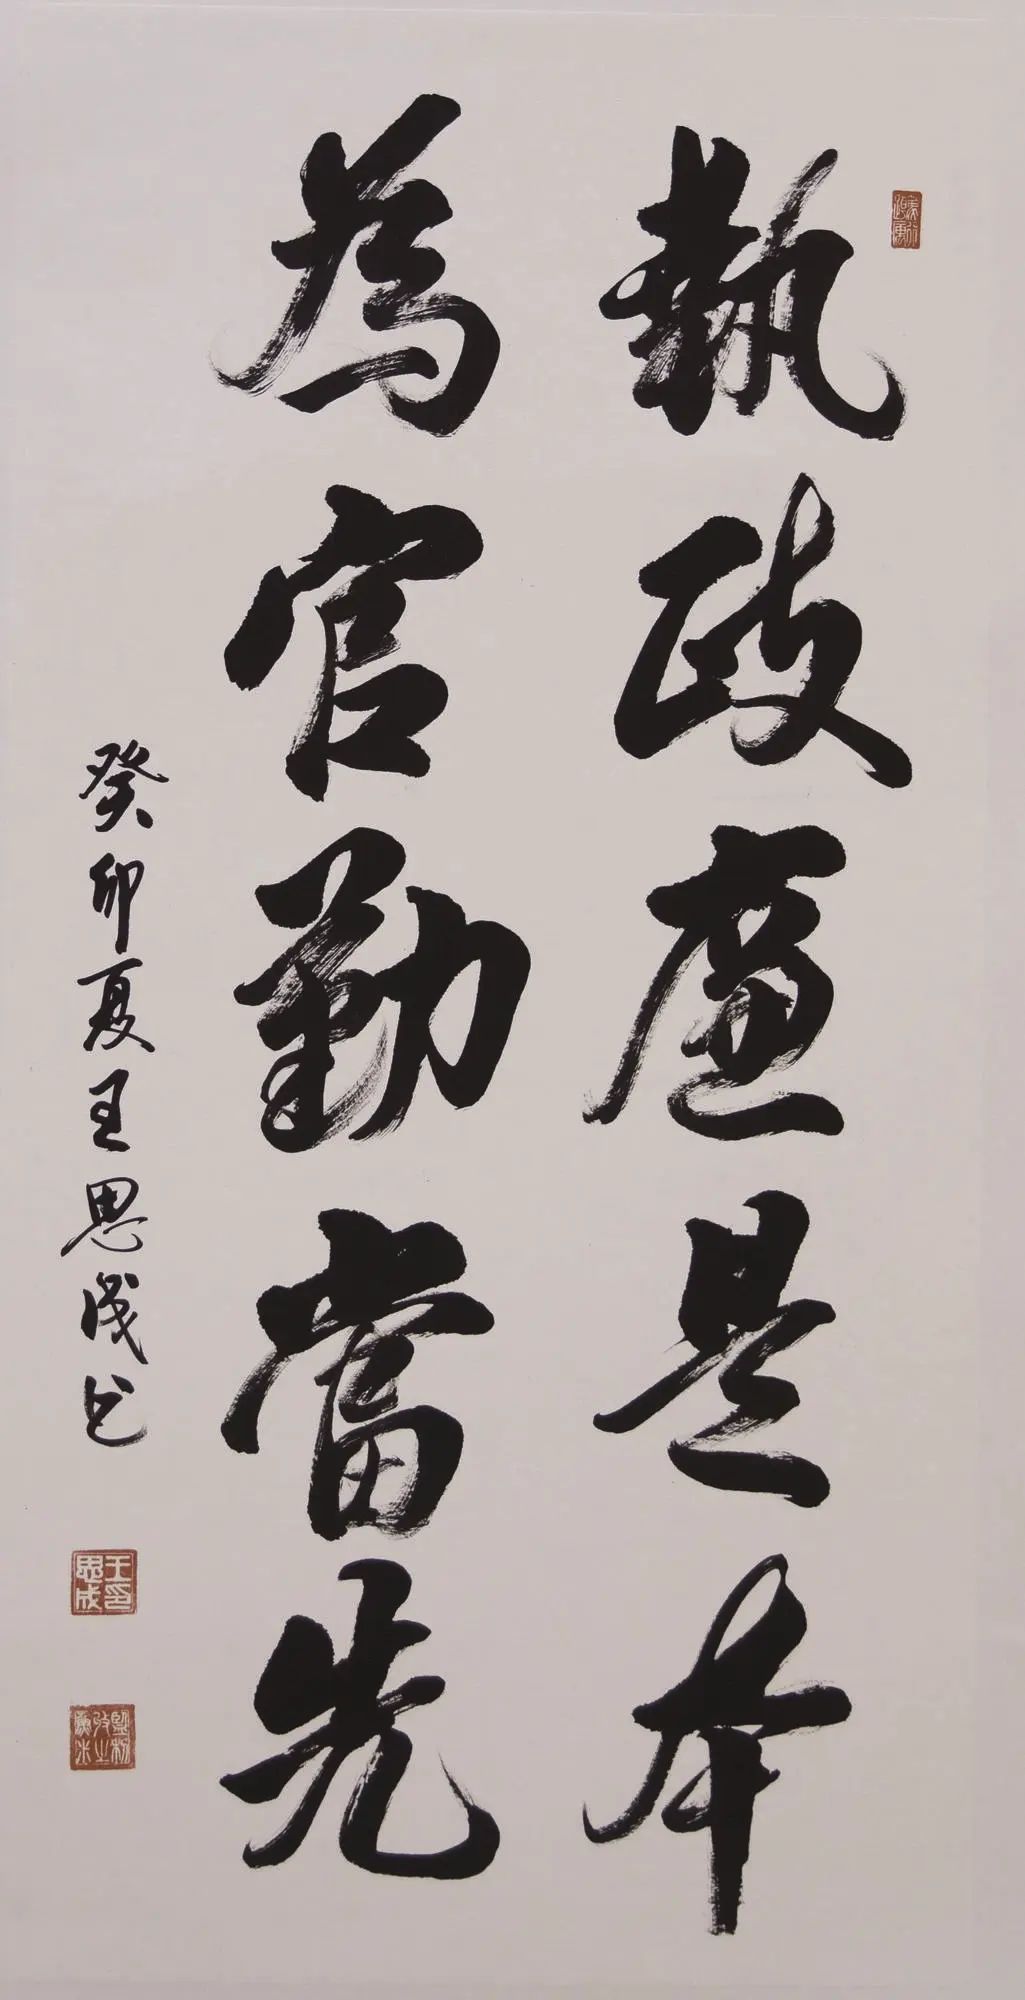 執政廉是本
為官勤當先
癸卯夏王思成书
王思成印